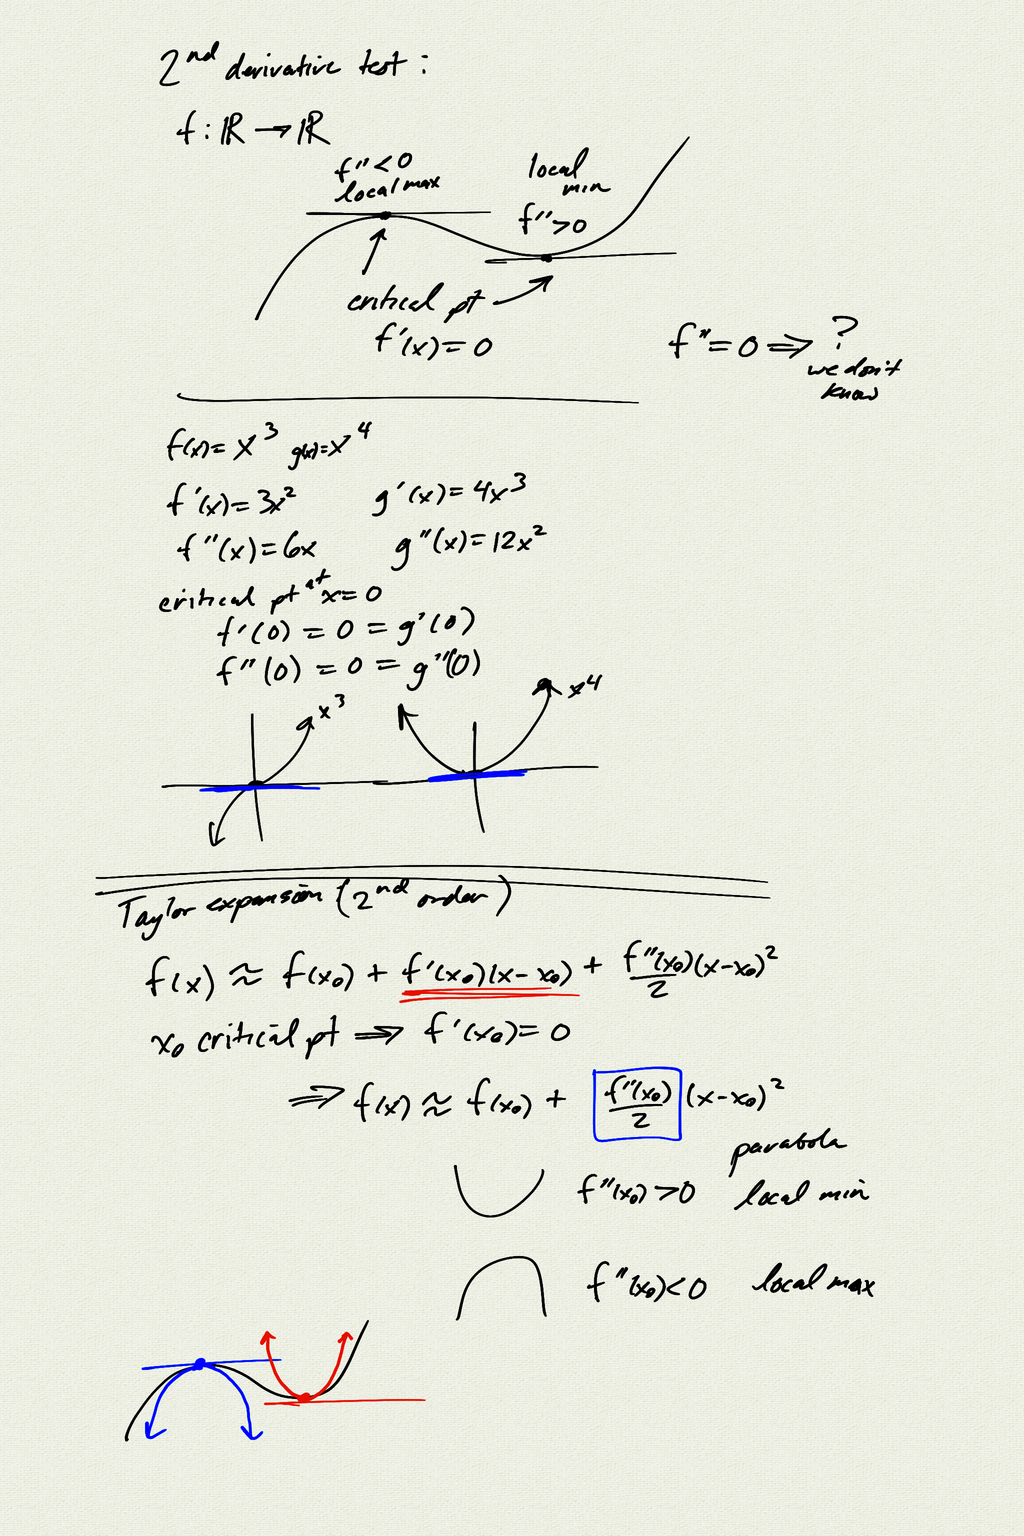 2nd derivative test :
f : ℝ → ℝ
f'' < 0
local max
local
min
f'' > 0
critical pt
f'(x) = 0
f'' = 0 ⇒ ?
we don't
know
f(x) = x³ g(x) = x⁴
f'(x) = 3x² g'(x) = 4x³
f''(x) = 6x g''(x) = 12x²
critical pt at x = 0
f'(0) = 0 = g'(0)
f''(0) = 0 = g''(0)
x³
x⁴
Taylor expansion (2nd order)
f(x) ≈ f(x₀) + f'(x₀)(x - x₀) + f''(x₀)/2 (x - x₀)²
x₀ critical pt ⇒ f'(x₀) = 0
⇒ f(x) ≈ f(x₀) + f''(x₀)/2 (x - x₀)²
parabola
f''(x₀) > 0 local min
f''(x₀) < 0 local max